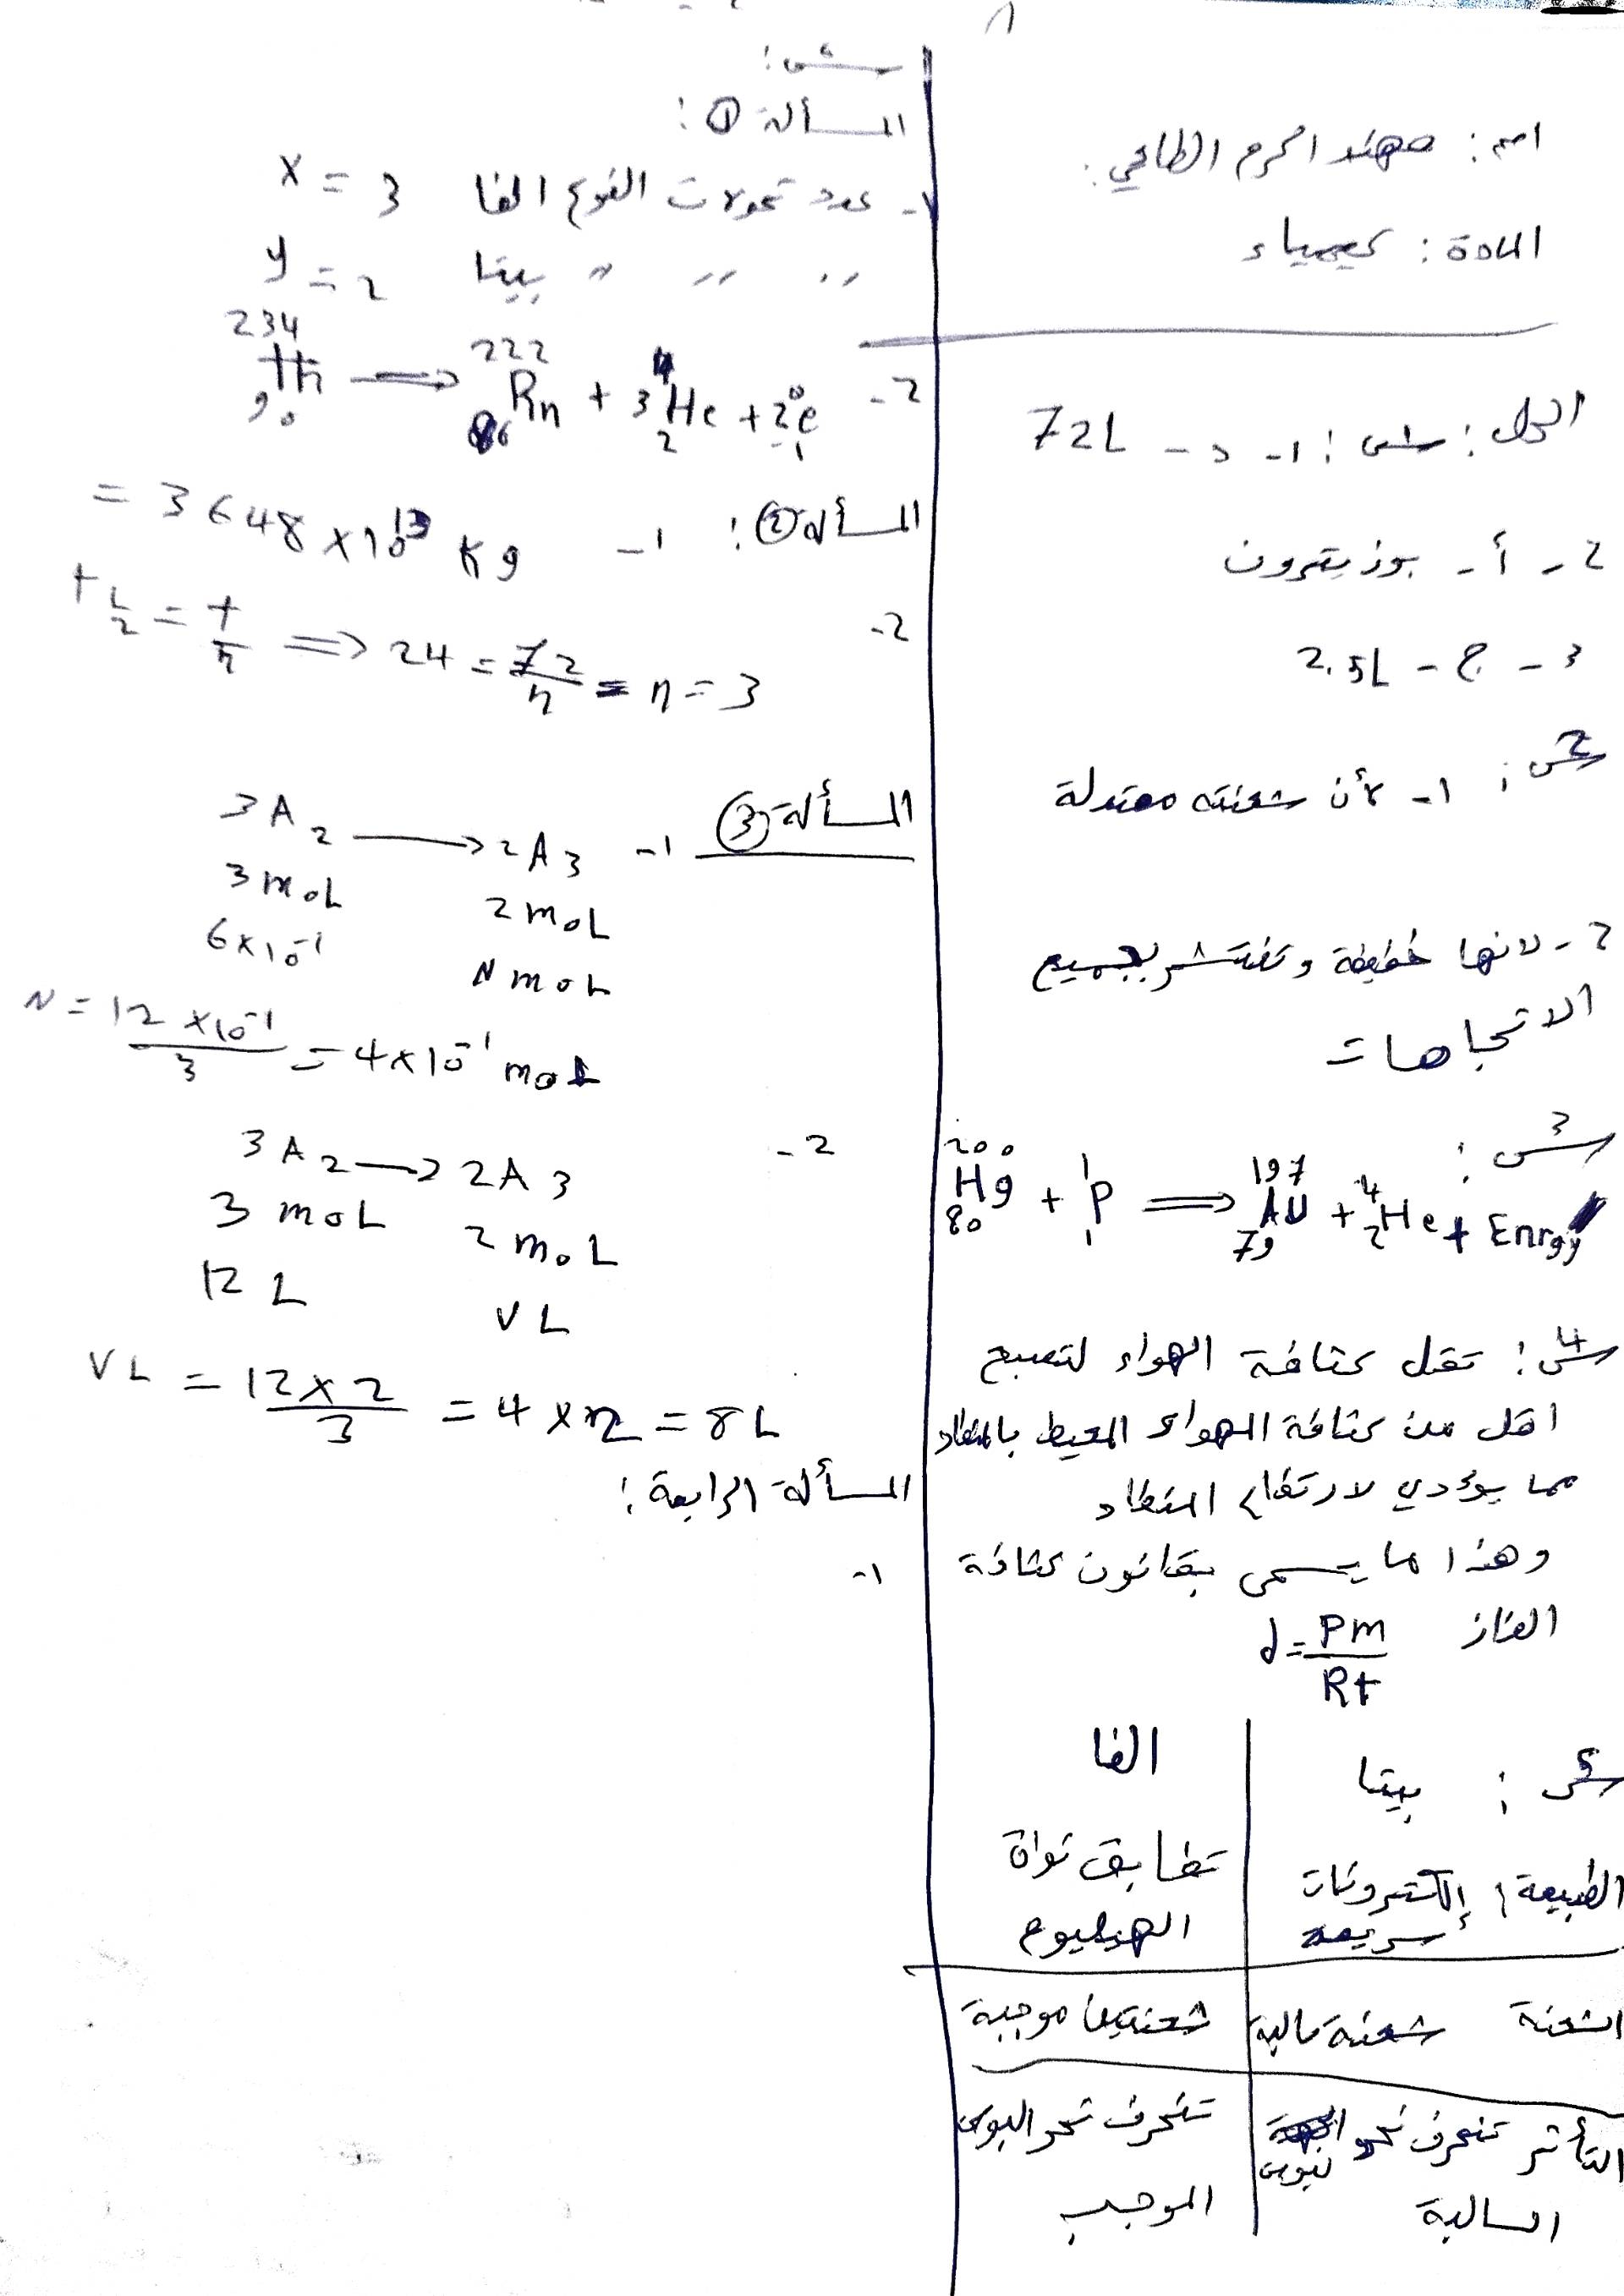 اسم : مهند اكرم الطاحي.
المادة : كيمياء
الحل : س1 : 1- د - 72L
2 - أ - بوزيترون
3 - ج - 2.5L
س2 : 1- لأن شحنته معتدلة
2 - لانها خفيفة و تنتشر بجميع
الاتجاهات
س3 :
²⁰⁰₈₀Hg + ¹₁P ⟹ ¹⁹⁷₇₉AU + ⁴₂He + Enrgy
س4 : تقل كثافة الهواء لتصبح
اقل من كثافة الهواء المحيط بالمنطاد
مما يؤدي لارتفاع المنطاد
وهذا ما يسمى بقانون كثافة
الغاز d = Pm / Rt
س5 : بيتا | الفا
الطبيعة : إلكترونات سريعة | تطابق نواة الهيليوم
الشحنة شحنة سالبة | شحنتين موجبة
التأثر تنحرف نحو لبوس السالبة | تنحرف نحو اللبوس الموجب
المسألة ① :
1- عدد تحولات النوع الفا x = 3
〃 〃 〃 بيتا y = 2
2- ²³⁴₉₀Th ⟹ ²²²₈₆Rn + 3⁴₂He + 2⁰₋₁e
المسألة ② : 1- = 3648 × 10¹³ Kg
2- t½ = t/n ⟹ 24 = 72/n = n = 3
المسألة ③ 1- 3A₂ ⟶ 2A₃
3 moL 2 moL
6×10⁻¹ N moL
N = 12 × 10⁻¹ / 3 = 4 × 10⁻¹ moL
2- 3A₂ ⟶ 2A₃
3 moL 2 moL
12 L V L
V L = 12 × 2 / 3 = 4 × 2 = 8 L
المسألة الرابعة :
1-